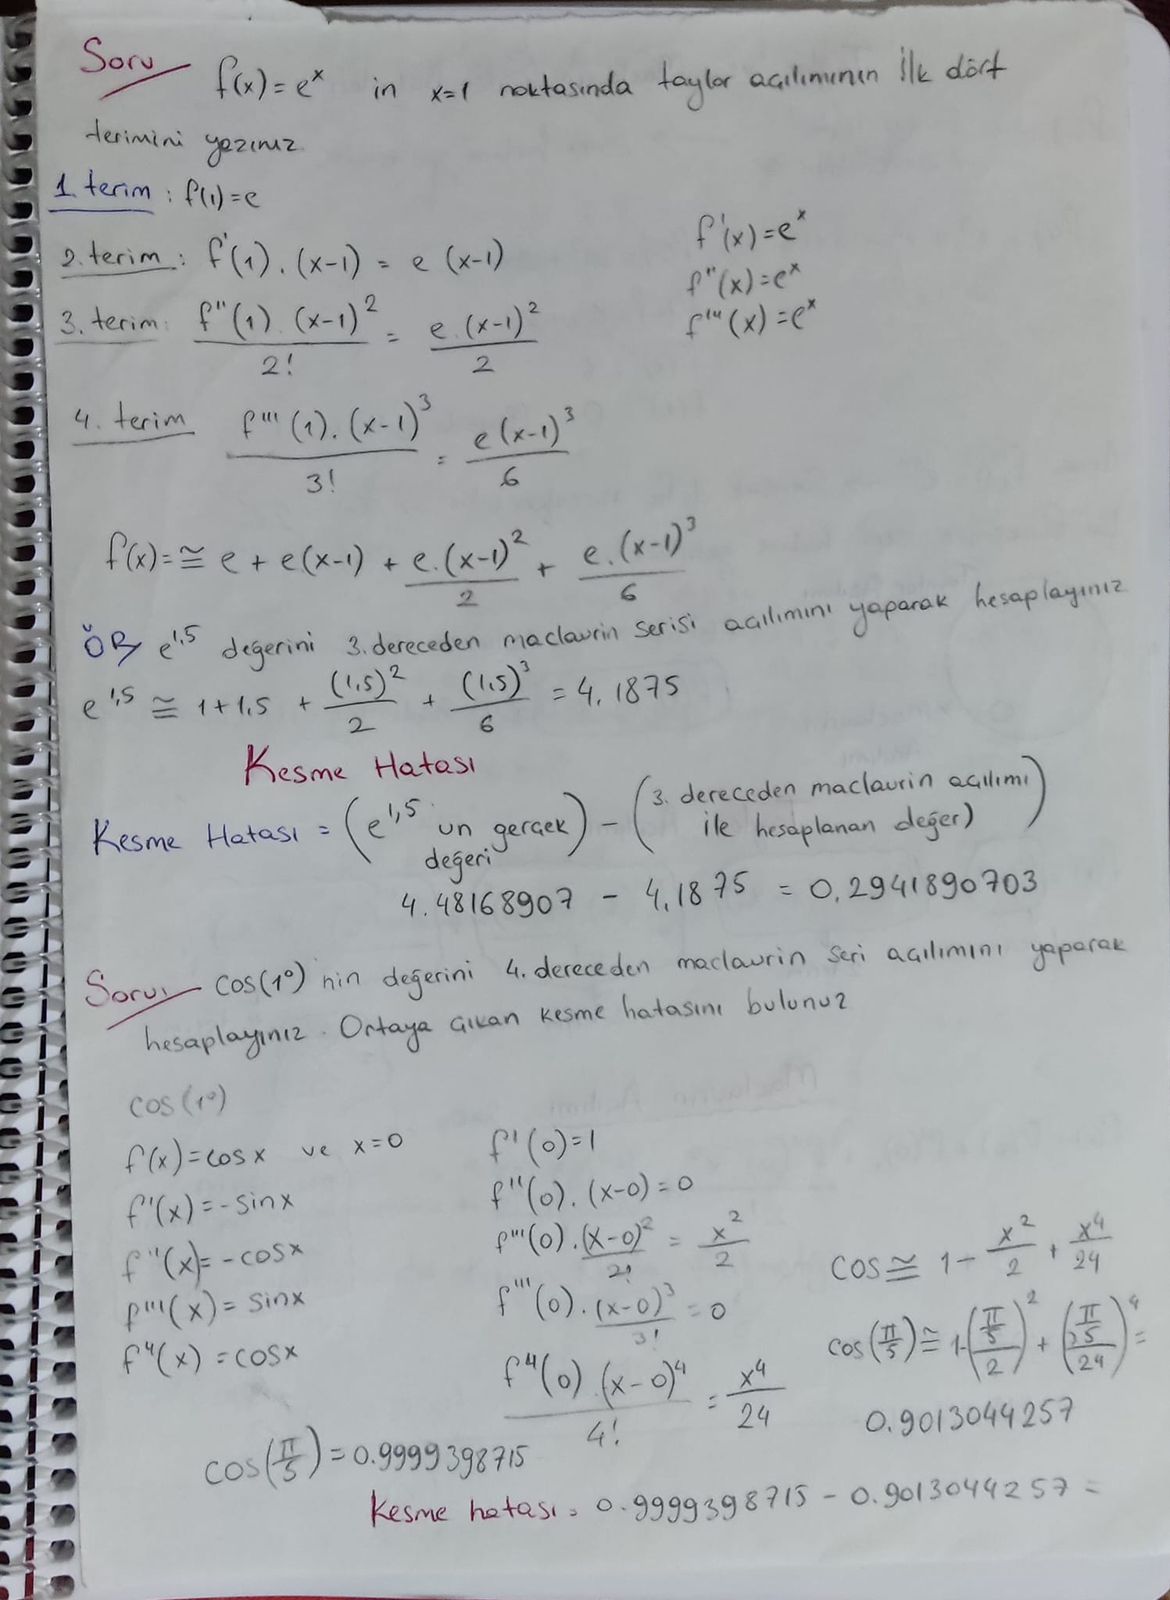 Soru f(x)=e^x in x=1 noktasında taylor açılımının İlk dört
terimini yazınız
1. terim : f(1)=e
f'(x)=e^x
2. terim : f'(1).(x-1) = e (x-1)
f''(x)=e^x
3. terim: f''(1).(x-1)^2 / 2! = e.(x-1)^2 / 2
f'''(x)=e^x
4. terim f'''(1).(x-1)^3 / 3! = e(x-1)^3 / 6
f(x)=≅ e + e(x-1) + e.(x-1)^2 / 2 + e.(x-1)^3 / 6
ÖR e^1,5 değerini 3. dereceden maclaurin serisi açılımını yaparak hesaplayınız
e^1,5 ≅ 1+1,5 + (1,5)^2 / 2 + (1,5)^3 / 6 = 4,1875
Kesme Hatası
Kesme Hatası = (e^1,5 un gerçek değeri) - (3. dereceden maclaurin açılımı
ile hesaplanan değer)
4.48168907 - 4,1875 = 0,2941890703
Soru: cos(1°) nin değerini 4. dereceden maclaurin seri açılımını yaparak
hesaplayınız. Ortaya çıkan kesme hatasını bulunuz
cos(1°)
f(x)=cosx ve x=0
f'(x)=-sinx
f''(x)=-cosx
f'''(x)=sinx
f^4(x)=cosx
f'(0)=1
f''(0).(x-0)=0
f'''(0).(x-0)^2 / 2! = x^2 / 2
f'''(0).(x-0)^3 / 3! = 0
f^4(0).(x-0)^4 / 4! = x^4 / 24
cos≅ 1- x^2 / 2 + x^4 / 24
cos(π/5)≅ 1-(π/5 / 2)^2 + (π/5 / 24)^4 =
0.9013044257
cos(π/5)=0.9999398715
Kesme hatası = 0.9999398715 - 0.9013044257 =